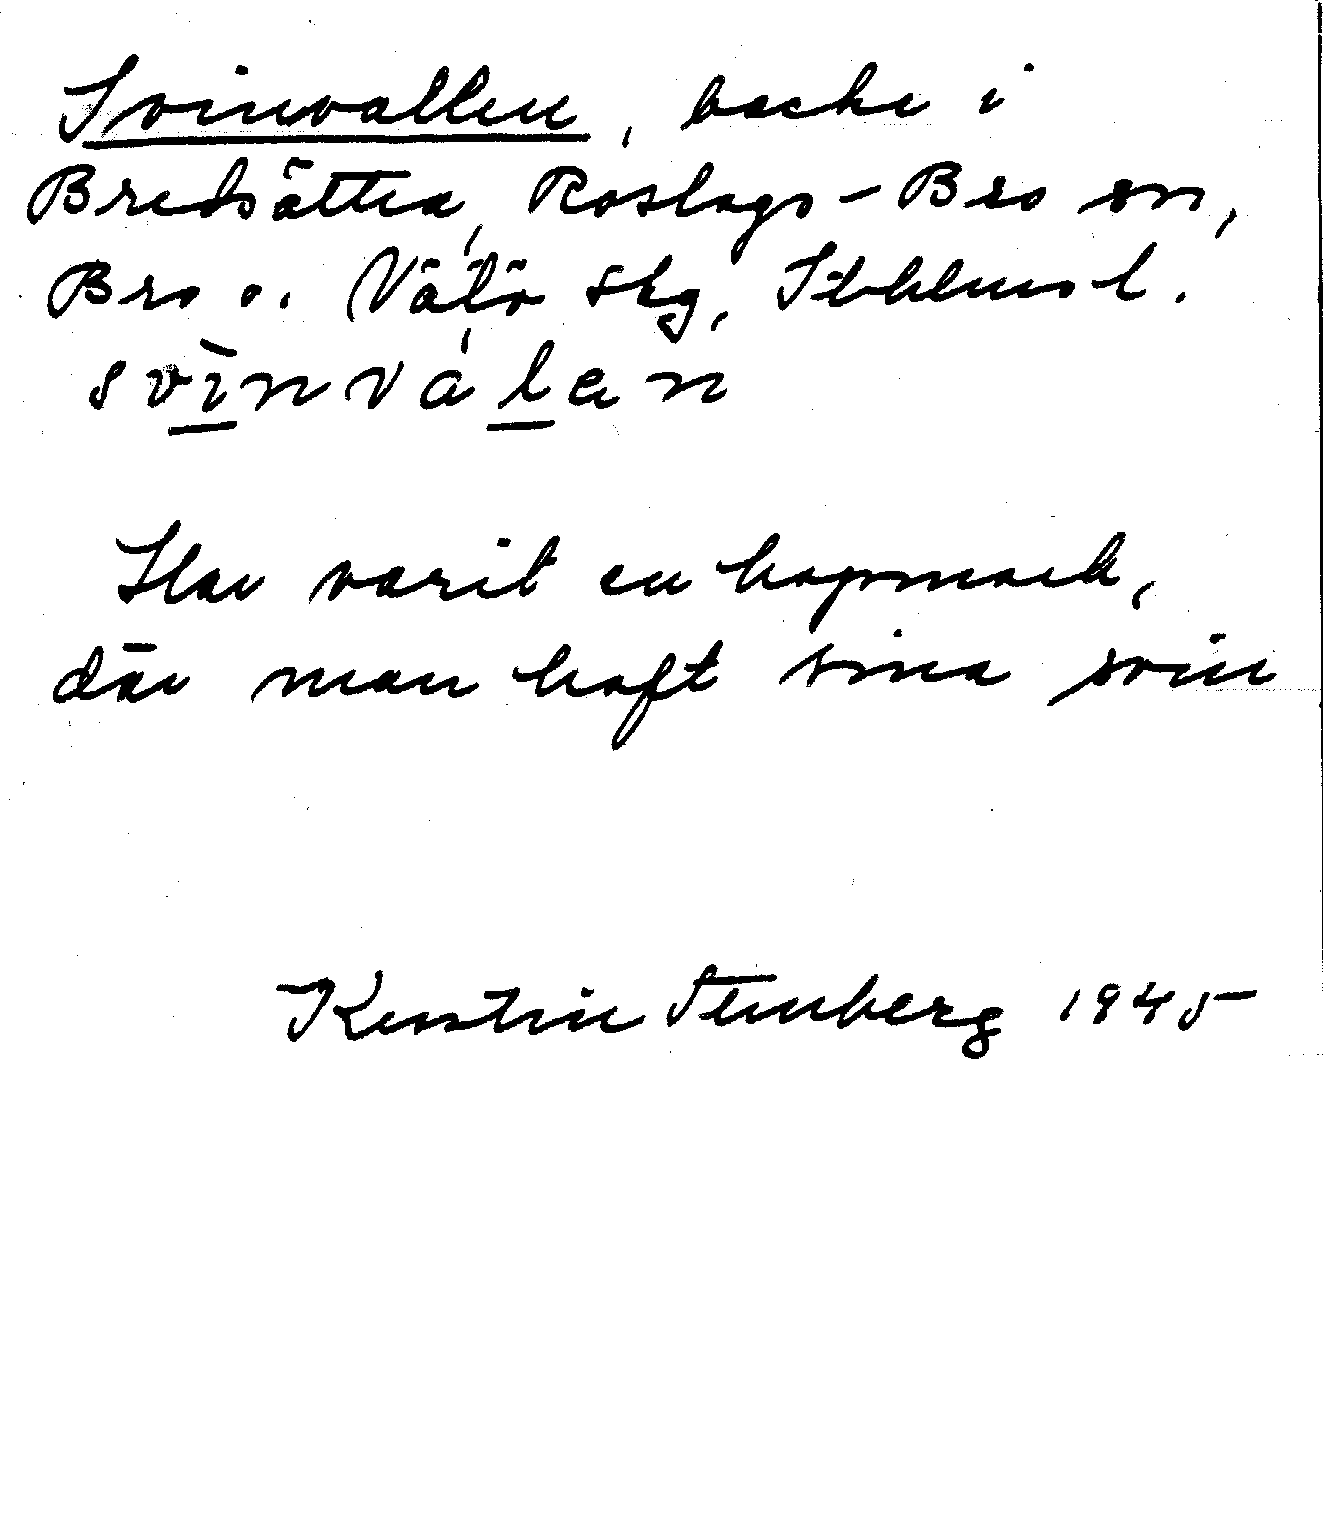 Svinvallen, backe i
Bredsätra, Roslags-Bro sn,
Bro o. Vätö skg, Sthlms l.
svìnvàlan
Har varit en hagmark,
där man haft sina svin
Kerstin Stenberg 1945